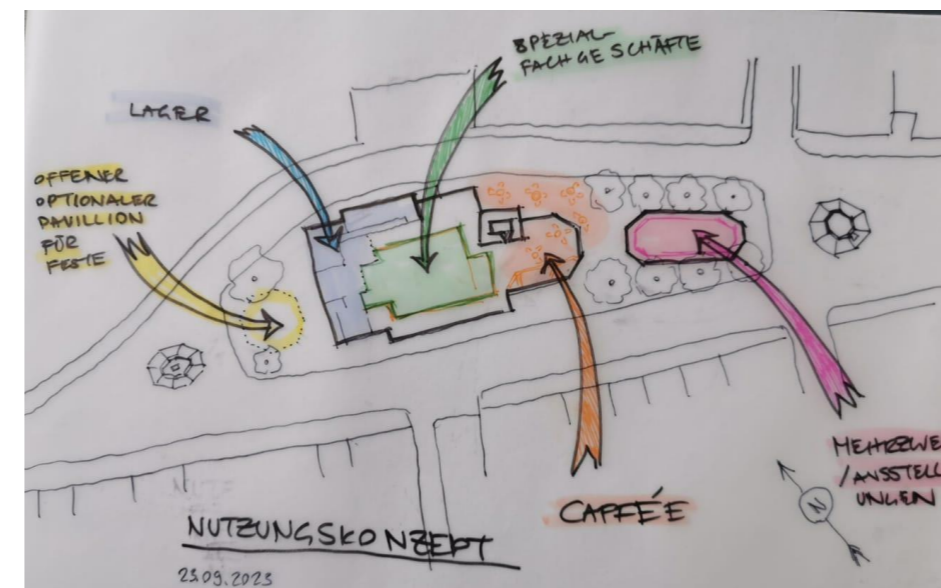 SPEZIAL-
FACHGESCHÄFTE
LAGER
OFFENER
OPTIONALER
PAVILLION
FÜR
FESTE
MEHRZWE
/AUSSTELL
UNGEN
CAFFÉE
N
NUTZUNGSKONZEPT
23.09.2023